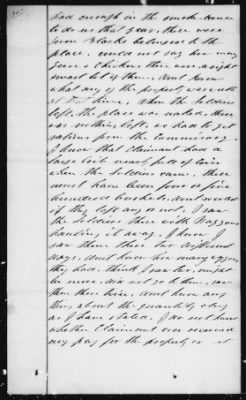 had enough in the smoke house
to do us that year, there were
seven Stacks belonged to the
place, could not say how many
geese & chickens there were, a right
smart lot of them, dont know
what any of the property was worth
at that time, when the Soldiers
left, the place was naked, there
was nothing left, we had to get
rations from the Commissary.
I know that Claimant had a
large Crib nearly full of Corn
when the Soldiers came, there
must have been four or five
hundred bushels, dont know
if they left any or not, I saw
the Soldiers there with Waggons
hauling it away. I know I
saw them there two different
days, dont know how many waggons
they had, think I saw two, might
be more, did not go to them, saw
them there here, dont know any
thing about the quantity only
as I have stated, I do not know
whether Claimant ever received
any pay for the property or not